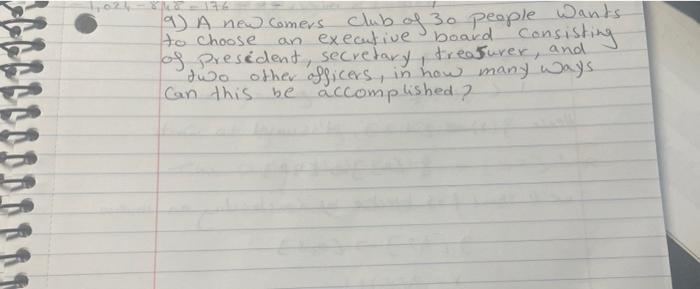 1,024 - 848 = 176
9) A new comers club of 30 people wants
to choose an executive board consisting
of president, secretary, treasurer, and
two other officers, in how many ways
Can this be accomplished?